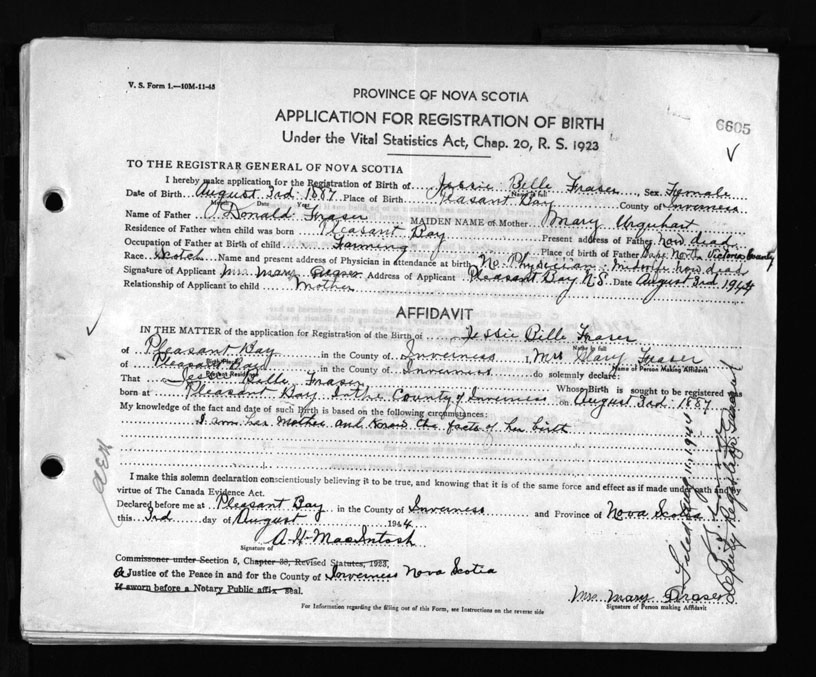 V. S. Form 1.—10M-11-43
PROVINCE OF NOVA SCOTIA
APPLICATION FOR REGISTRATION OF BIRTH
6605
Under the Vital Statistics Act, Chap. 20, R. S. 1923
TO THE REGISTRAR GENERAL OF NOVA SCOTIA
I hereby make application for the Registration of Birth of Jessie Belle Fraser, Sex Female
Name in full
Date of Birth August 3rd 1887 Place of Birth Pleasant Bay County of Inverness
Month Day Year
Name of Father Donald Fraser MAIDEN NAME of Mother Mary Urquhart
Residence of Father when child was born Pleasant Bay Present address of Father now dead
Occupation of Father at Birth of child Farming Place of birth of Father Cape North Victoria County
Race Scotch Name and present address of Physician in attendance at birth No Physician Midwife now dead
Signature of Applicant Mrs Mary Fraser Address of Applicant Pleasant Bay N.S. Date August 3rd 1944
Relationship of Applicant to child Mother
AFFIDAVIT
IN THE MATTER of the application for Registration of the Birth of Jessie Bille Fraser
Name in full
of Pleasant Bay in the County of Inverness I, Mrs Mary Fraser
Birth Place
Name of Person Making Affidavit
of Pleasant Bay in the County of Inverness do solemnly declare:
Present Residence
That Jessie Belle Fraser Whose Birth is sought to be registered was
born at Pleasant Bay In the County of Inverness on August 3rd 1887
My knowledge of the fact and date of such Birth is based on the following circumstances:
I am her Mother and Know the facts of her birth
I make this solemn declaration conscientiously believing it to be true, and knowing that it is of the same force and effect as if made under oath and by
virtue of The Canada Evidence Act.
Declared before me at Pleasant Bay in the County of Inverness and Province of Nova Scotia
this 3rd day of August 1944
A H MacIntosh
Signature of
Commissoner under Section 5, Chapter 38, Revised Statutes, 1923,
A Justice of the Peace in and for the County of Inverness Nova Scotia
If sworn before a Notary Public affix seal.
Mrs Mary Fraser
Signature of Person making Affidavit
For Information regarding the filling out of this Form, see Instructions on the reverse side
Filed Aug 11, 1944
Deputy Registrar General